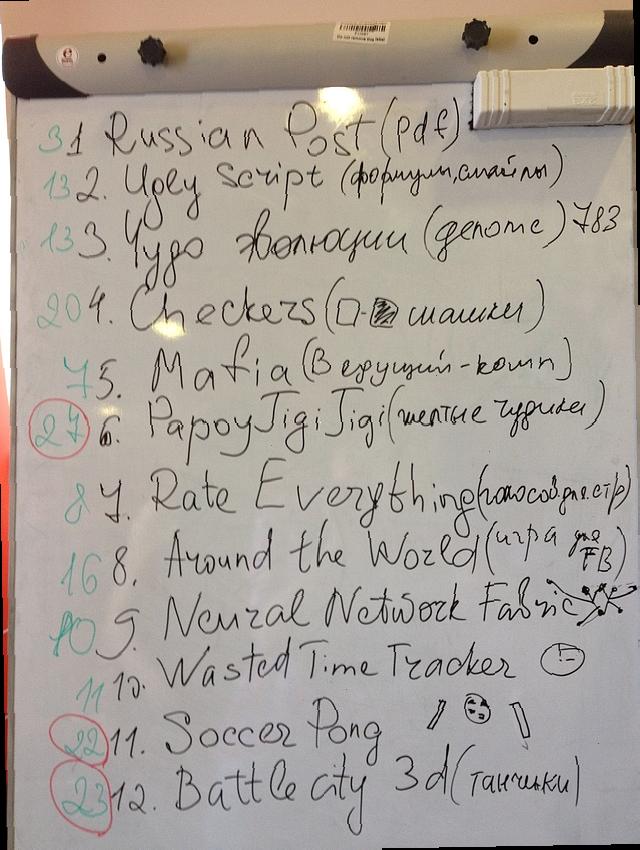 3 1 Russian Post (pdf)
13 2. Ugly Script (формулы, смайлы)
13 3. Чудо эволюции (genome) 783
20 4. Checkers ( - шашки)
7 5. Mafia (Ведущий - комп)
27 6. Papoy Jigi Jigi (желтые чудики)
8 7. Rate Everything (голосов. для стр)
16 8. Around the World (игра для FB)
10 9. Neural Network Fabric
11 10. Wasted Time Tracker
22 11. Soccer Pong
23 12. Battle city 3d (танчики)